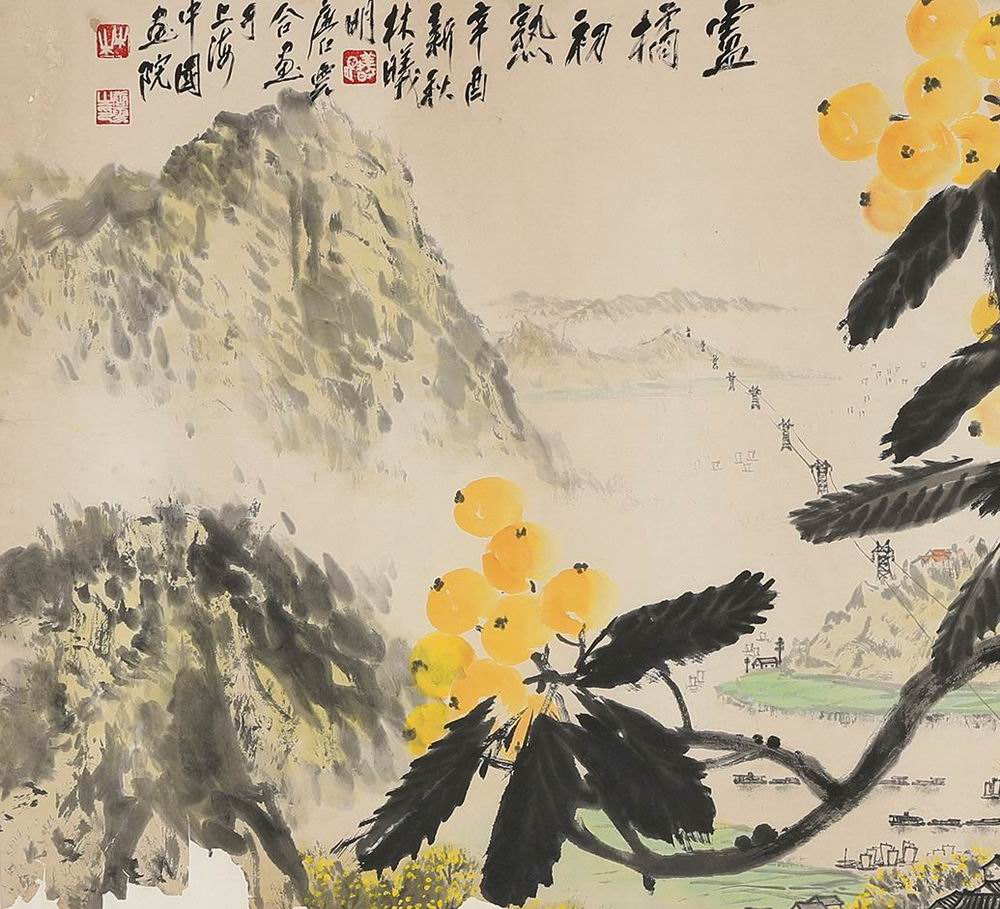 盧橘初熟
辛酉
新秋
林曦
明
唐雲
合画
于
上海
中國
画院